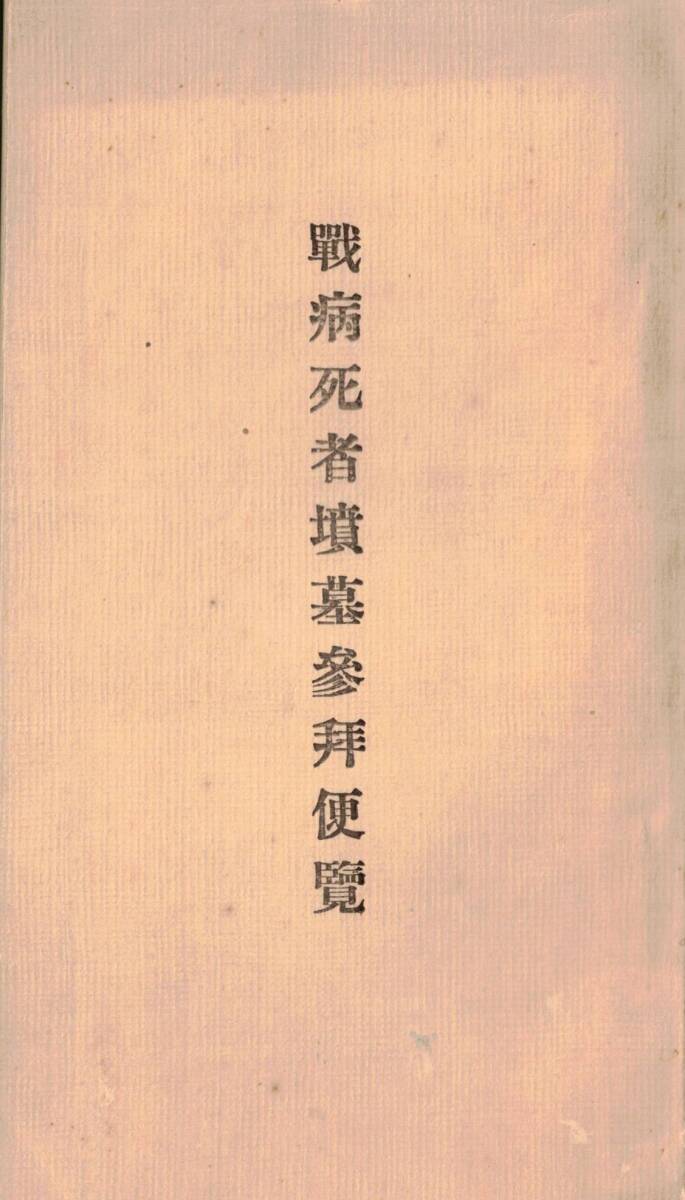 戰病死者墳墓參拜便覽